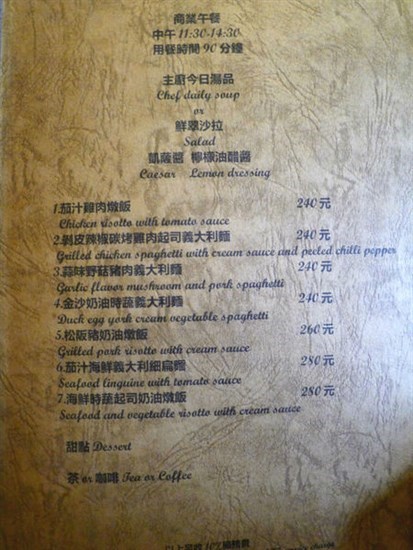 商業午餐
中午 11:30-14:30
用餐時間 90 分鐘
主廚今日湯品
Chef daily soup
or
鮮翠沙拉
Salad
凱薩醬 檸檬油醋醬
Caesar Lemon dressing
1.茄汁雞肉燉飯 240 元
Chicken risotto with tomato sauce
2.剝皮辣椒碳烤雞肉起司義大利麵 240 元
Grilled chicken spaghetti with cream sauce and peeled chilli pepper
3.蒜味野菇豬肉義大利麵 240 元
Garlic flavor mushroom and pork spaghetti
4.金沙奶油時蔬義大利麵 240 元
Duck egg york cream vegetable spaghetti
5.松阪豬奶油燉飯 260 元
Grilled pork risotto with cream sauce
6.茄汁海鮮義大利細扁麵 280 元
Seafood linguine with tomato sauce
7.海鮮時蔬起司奶油燉飯 280 元
Seafood and vegetable risotto with cream sauce
甜點 Dessert
茶 or 咖啡 Tea or Coffee
10%服務費